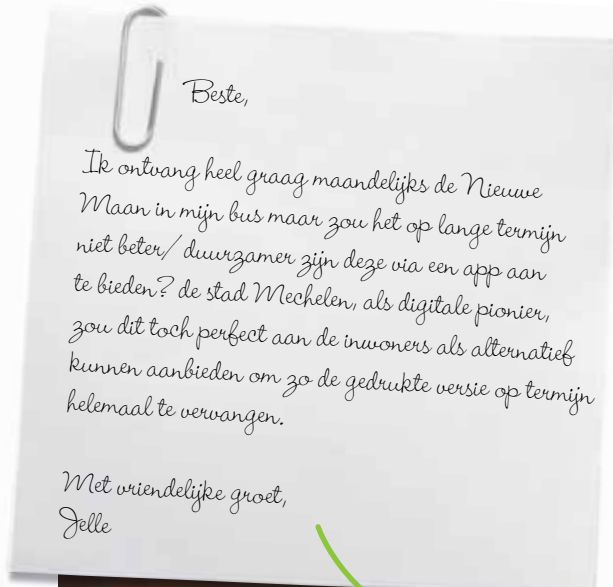 Beste,
Ik ontvang heel graag maandelijks de Nieuwe
Maan in mijn bus maar zou het op lange termijn
niet beter/ duurzamer zijn deze via een app aan
te bieden? de stad Mechelen, als digitale pionier,
zou dit toch perfect aan de inwoners als alternatief
kunnen aanbieden om zo de gedrukte versie op termijn
helemaal te vervangen.
Met vriendelijke groet,
Jelle